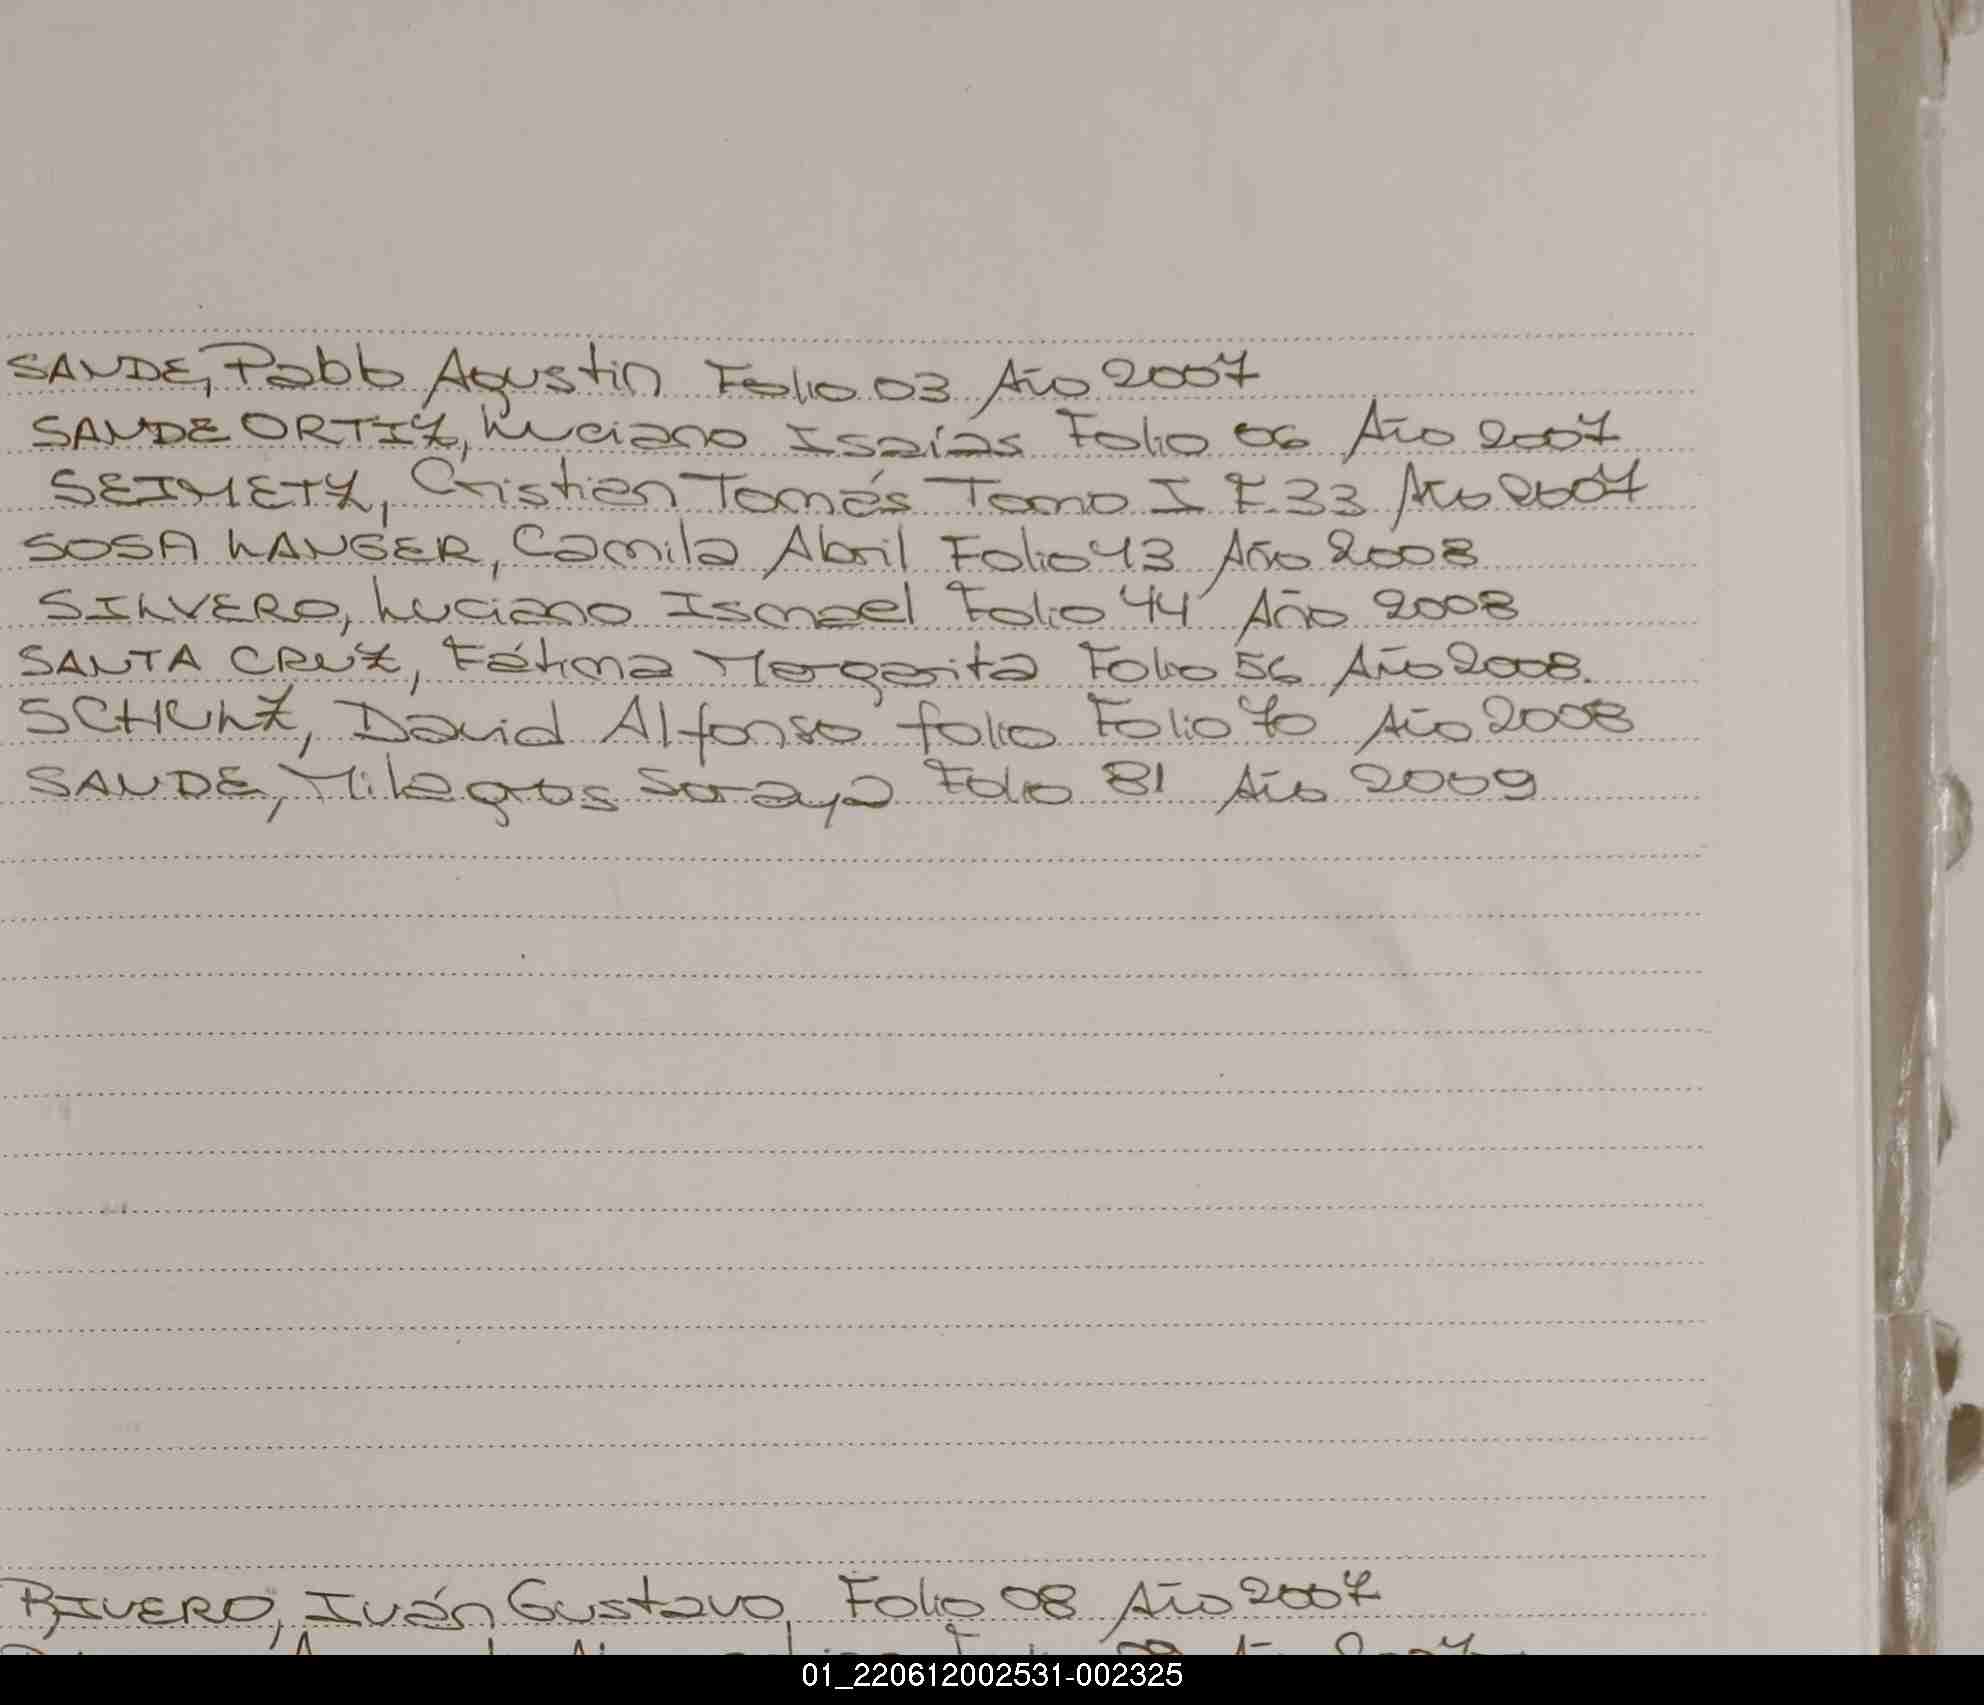 SANDE, Pablo Agustin Folio 03 Año 2007
SANDE ORTIZ, Luciano Isaías Folio 06 Año 2007
SEIMETZ, Cristian Tomás Tomo I F. 33 Año 2007
SOSA LANGER, Camila Abril Folio 43 Año 2008
SILVERO, Luciano Ismael Folio 44 Año 2008
SANTA CRUZ, Fátima Margarita Folio 56 Año 2008.
SCHULZ, David Alfonso folio Folio 70 Año 2008
SANDE, Milagros Soraya Folio 81 Año 2009
RIVERO, Iván Gustavo Folio 08 Año 2007
01_220612002531-002325